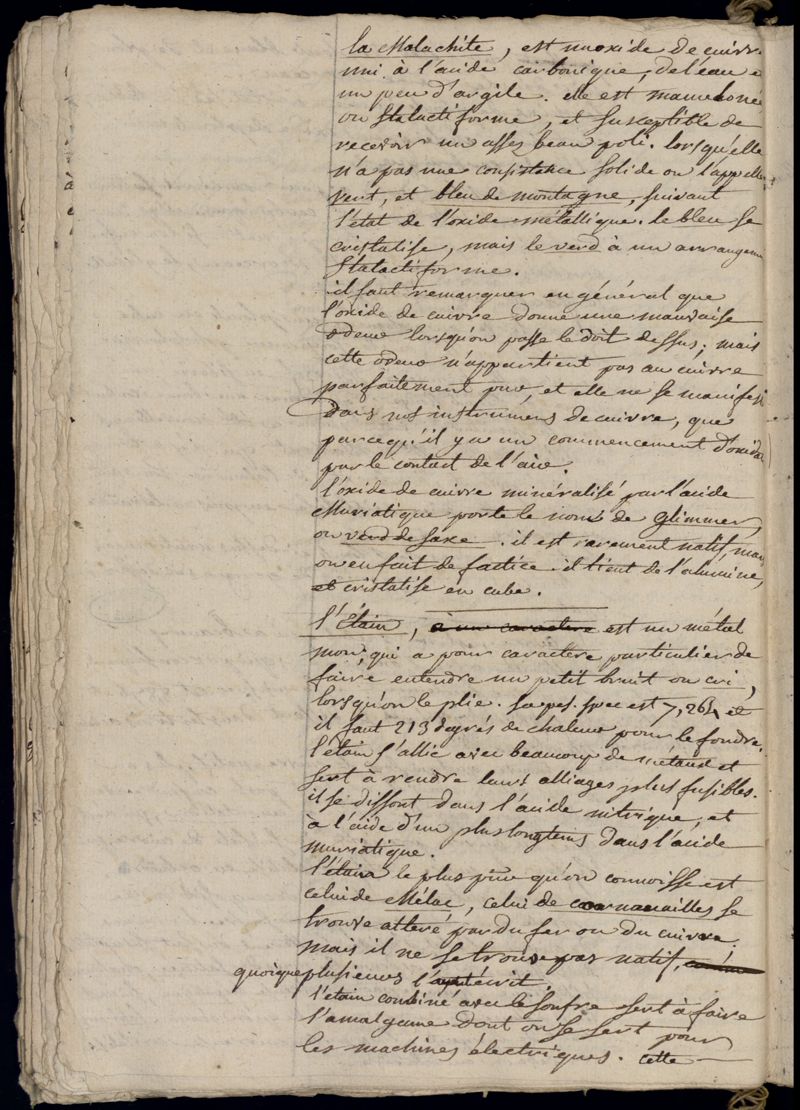 la Malachite, est un oxide de cuivre
uni à l'acide carbonique, de l'eau e
un peu d'argile. elle est mameloné
ou stalactiforme, et susceptible de
recevoir un asses beau poli. lorsqu'elle
n'a pas une consistance solide on l'appelle
vert, et bleu de montagne, suivant
l'état de l'oxide métallique. le bleu se
cristalise, mais le verd à un arrangem
stalactiforme.
il faut remarquer en général que
l'oxide de cuivre donne une mauvaise
odeur lorsqu'on passe le doit dessus; mais
cette odeur n'appartient pas au cuivre
parfaitement pur, et elle ne se manifest
dans nos instrumens de cuivre, que
parcequ'il y a un commencement d'oxida
par le contact de l'air.
l'oxide de cuivre minéralisé par l'acide
Muriatique porte le nom de Glimmer,
ou verd de saxe. il est rarement natif, mais
on en fait de factice. il tient de l'alumine,
et cristalise en cube.
l'Étain, à un caractere est un métal
mou, qui a pour caractère particulier de
faire entendre un petit bruit ou cri,
lorsqu'on le plie. sa pes. spec est 7,264 et
il faut 213 degrés de chaleur pour le fondre.
l'étain s'allie avec beaucoup de métaux et
sert à rendre leurs alliages plus fusibles.
il se dissout dans l'acide nitrique, et
à l'aide d'un plus longtems dans l'acide
muriatique.
l'étain le plus pur qu'on connoisse est
celui de Mélac, celui de cornouailles se
trouve altéré par du fer ou du cuivre.
mais il ne se trouve pas natif,
quoique plusieurs l'ayent écrit.
l'étain combiné avec le soufre sert à faire
l'amalgame dont on se sert pour
les machines électriques. cette